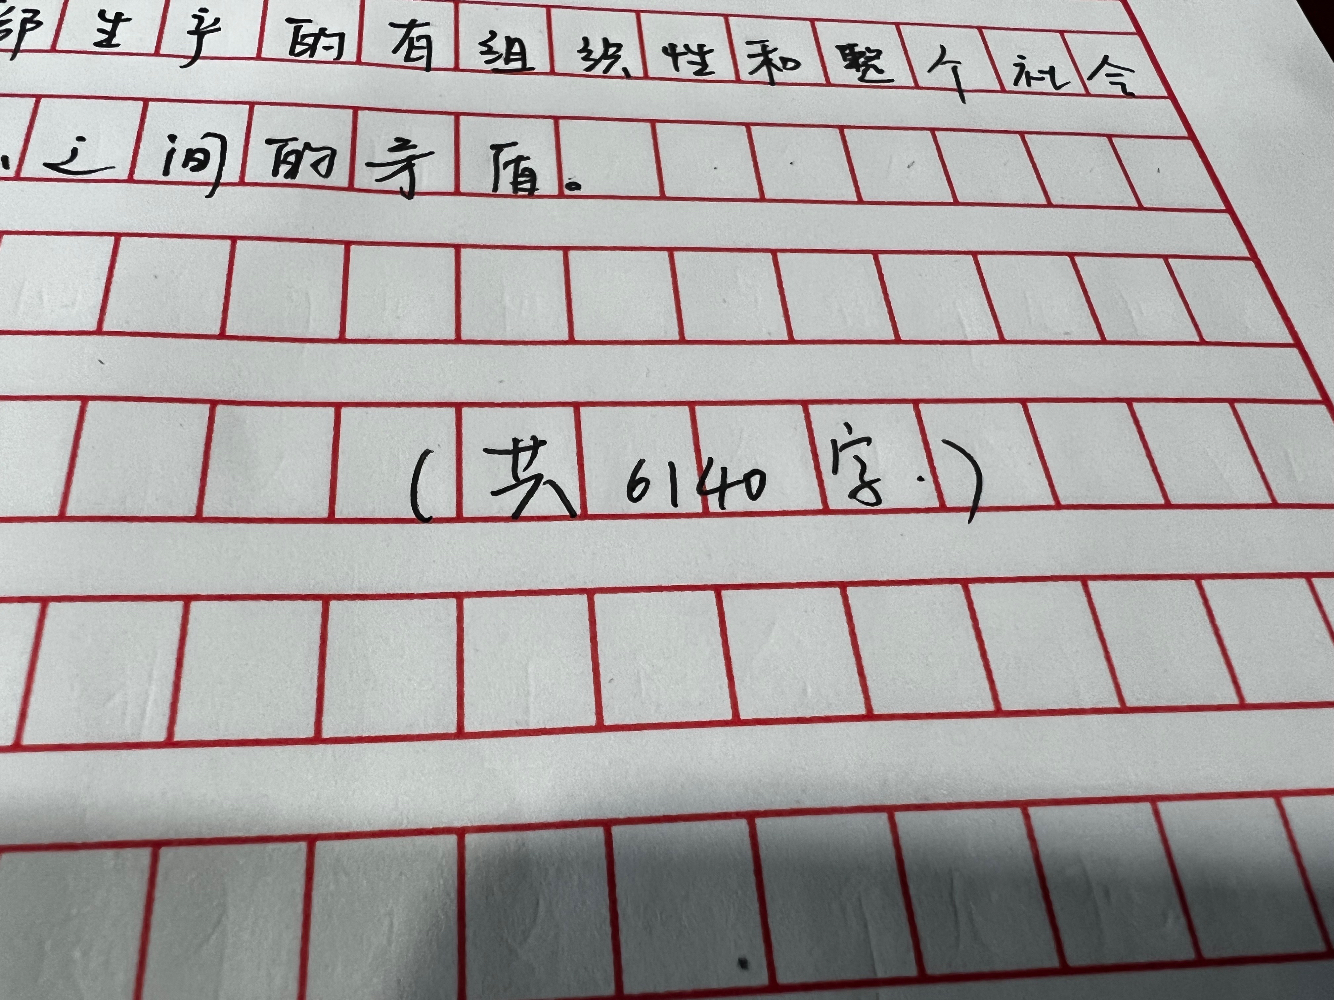 部生产的有组织性和整个社会
之间的矛盾。
(共6140字.)